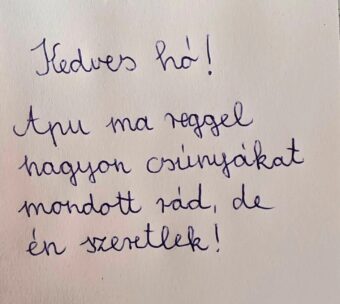 Kedves hó!
Apu ma reggel
nagyon csúnyákat
mondott rád, de
én szeretlek!